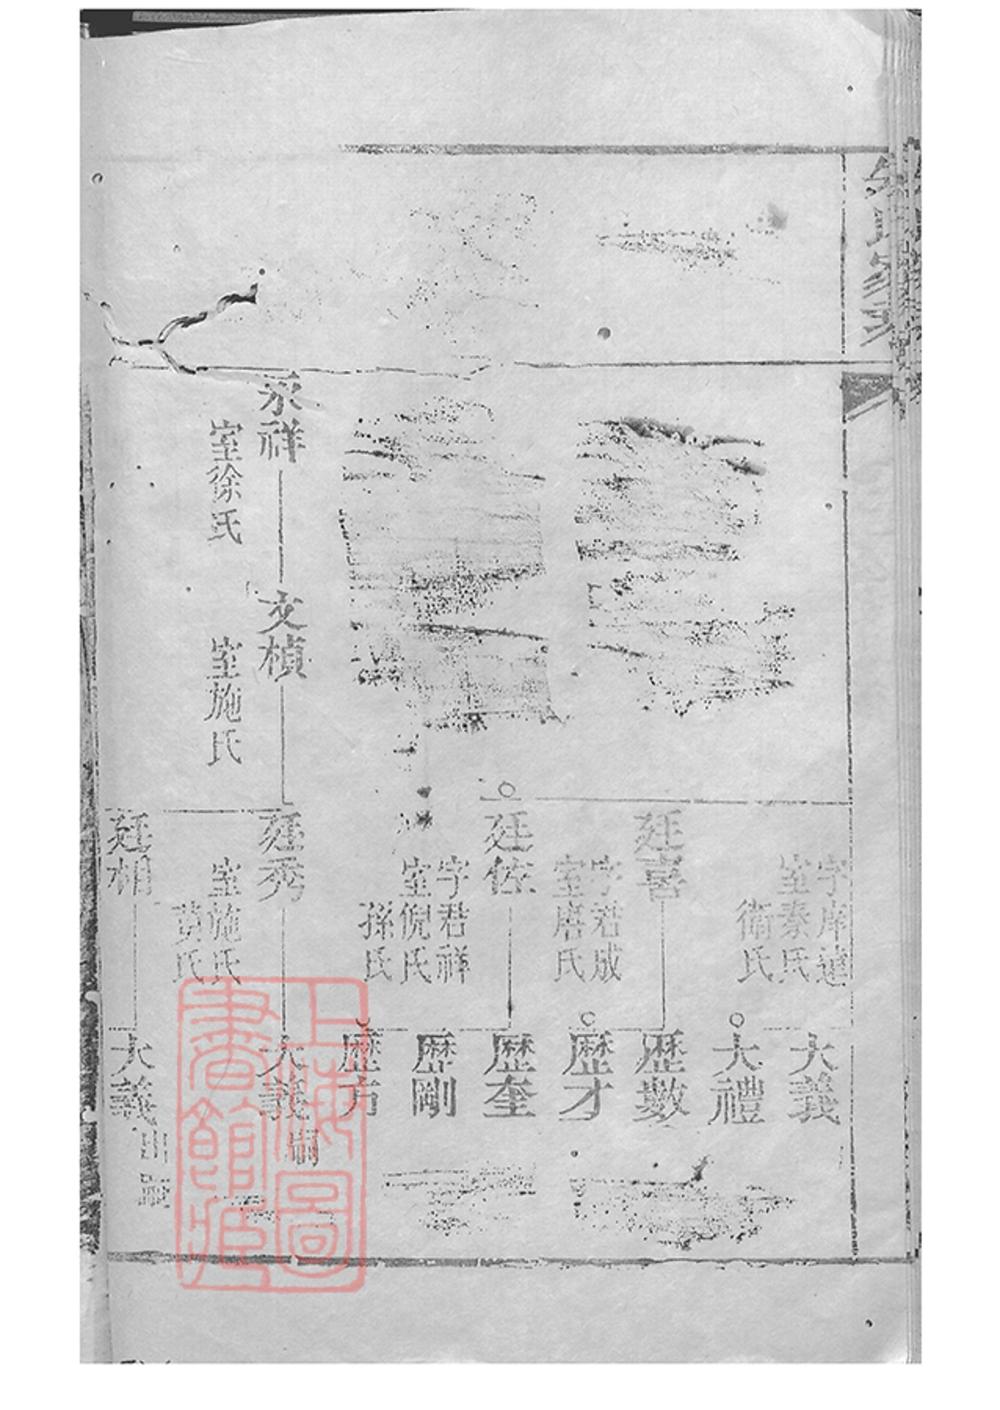 永祥
室徐氏
文楨
室施氏
室秦氏
衛氏
廷喜
字君成
室唐氏
廷佐
字君祥
室倪氏
孫氏
廷秀
室施氏
黄氏
廷相
大義
大禮
歷數
歷才
歷奎
歷剛
歷方
大義
嗣
大義
出嗣
上海圖書館藏